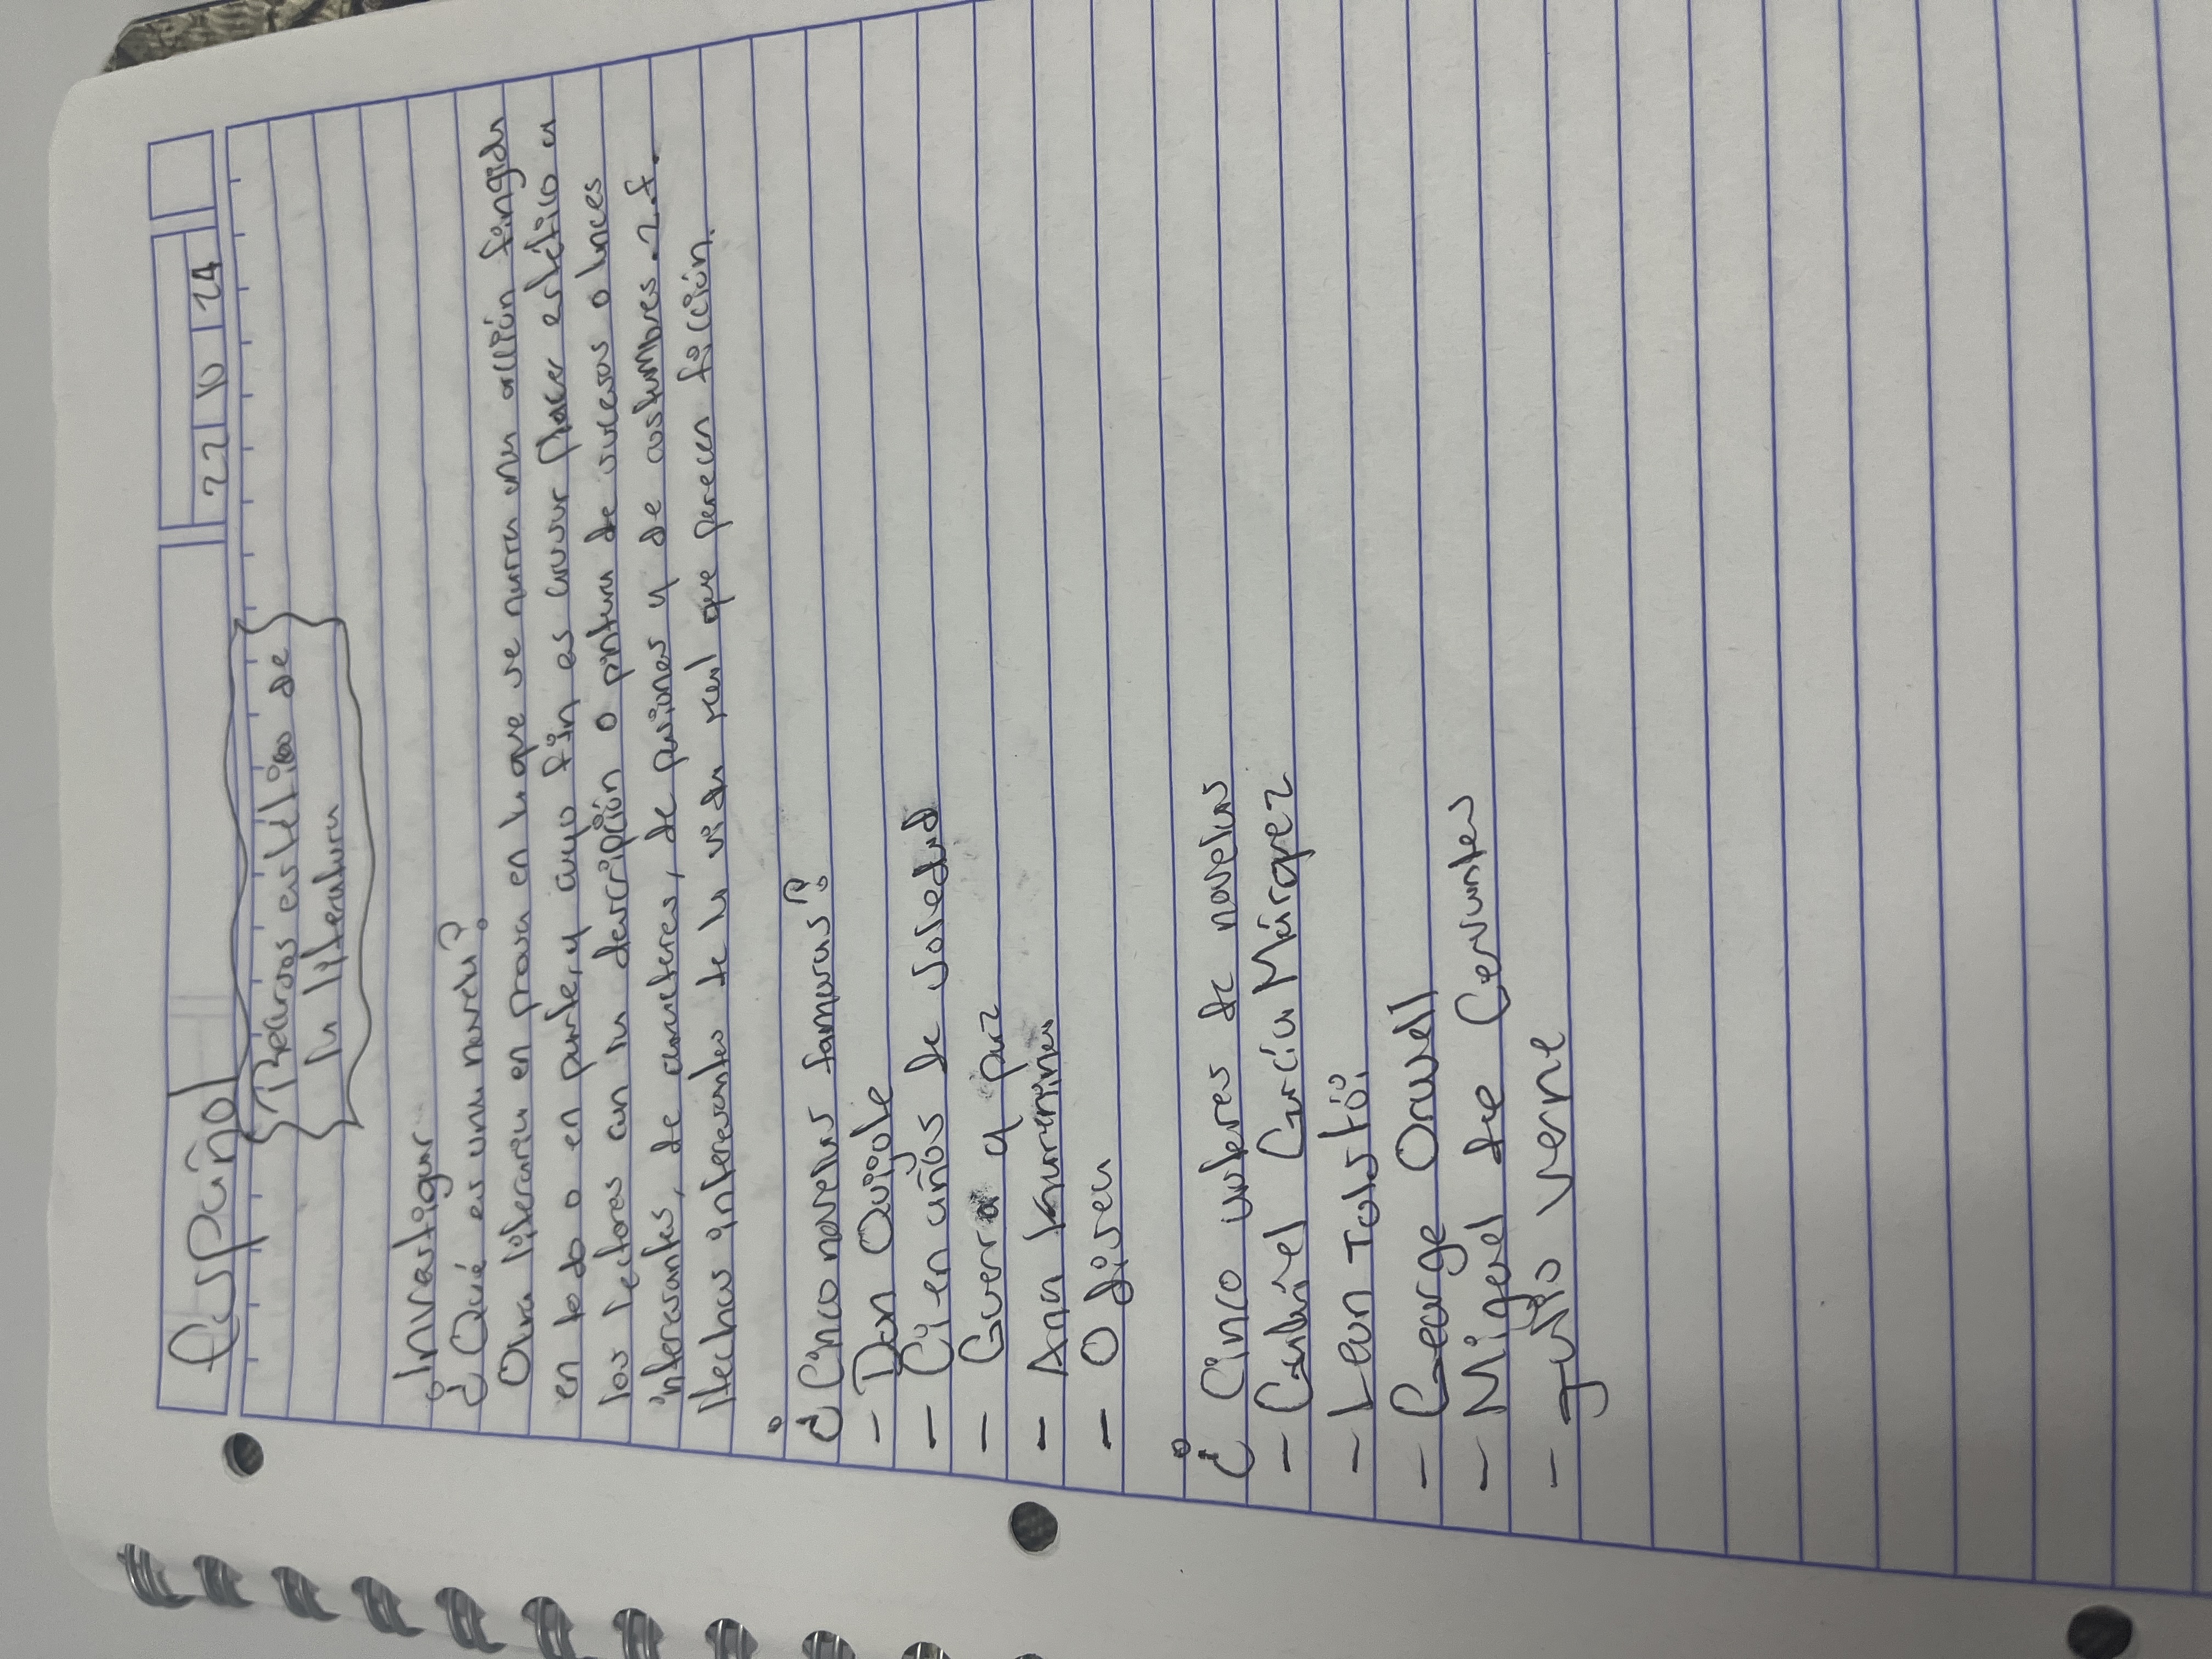 Español
22 10 24
Recursos estético de
la literatura
Investigar
¿Qué es una novela?
Obra literaria en prosa en la que se narra una acción fingida
en todo o en parte, y cuyo fin es causar placer estético a
los lectores con la descripción o pintura de sucesos o lances
interesantes, de caracteres, de pasiones y de costumbres. 2. f.
Hechos interesantes de la vida real que parecen ficción.
¿Cinco novelas famosas?
- Don Quijote
- Cien años de soledad
- Guerra y paz
- Ana Karenina
- Odisea
¿Cinco autores de novelas
- Gabriel García Márquez
- Leon Tolstói
- George Orwell
- Miguel de Cervantes
- Julio Verne